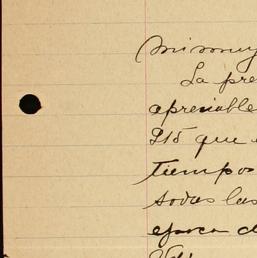 mi muy
La pre
apreciable
915 que
tiempos
todas las
epoca d